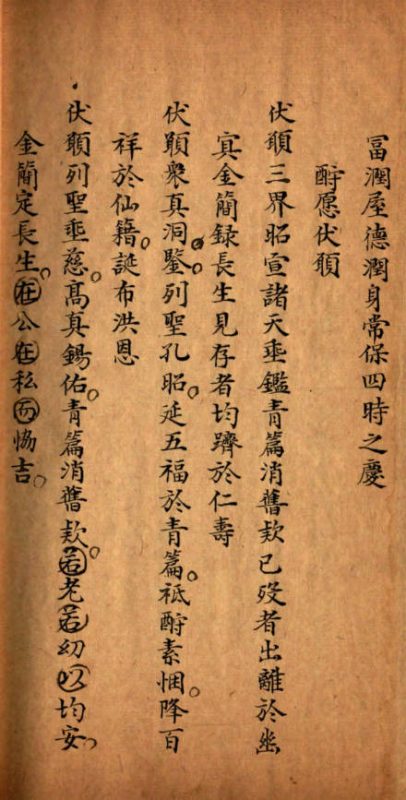 冨潤屋德潤身常保四時之慶
酧愿伏願
伏願三界昭宣諸天垂鑑青篇消舊欵已歿者出離於幽
㝠金簡錄長生見存者均躋於仁壽
伏願衆真洞鑒。列聖孔昭。延五福於青篇。祗酧素悃。降百
祥於仙籍。誕布洪恩
伏願列聖垂慈。髙真錫佑。青篇消舊欵。若老若幼以均安。
金簡定長生。在公在私而恊吉。